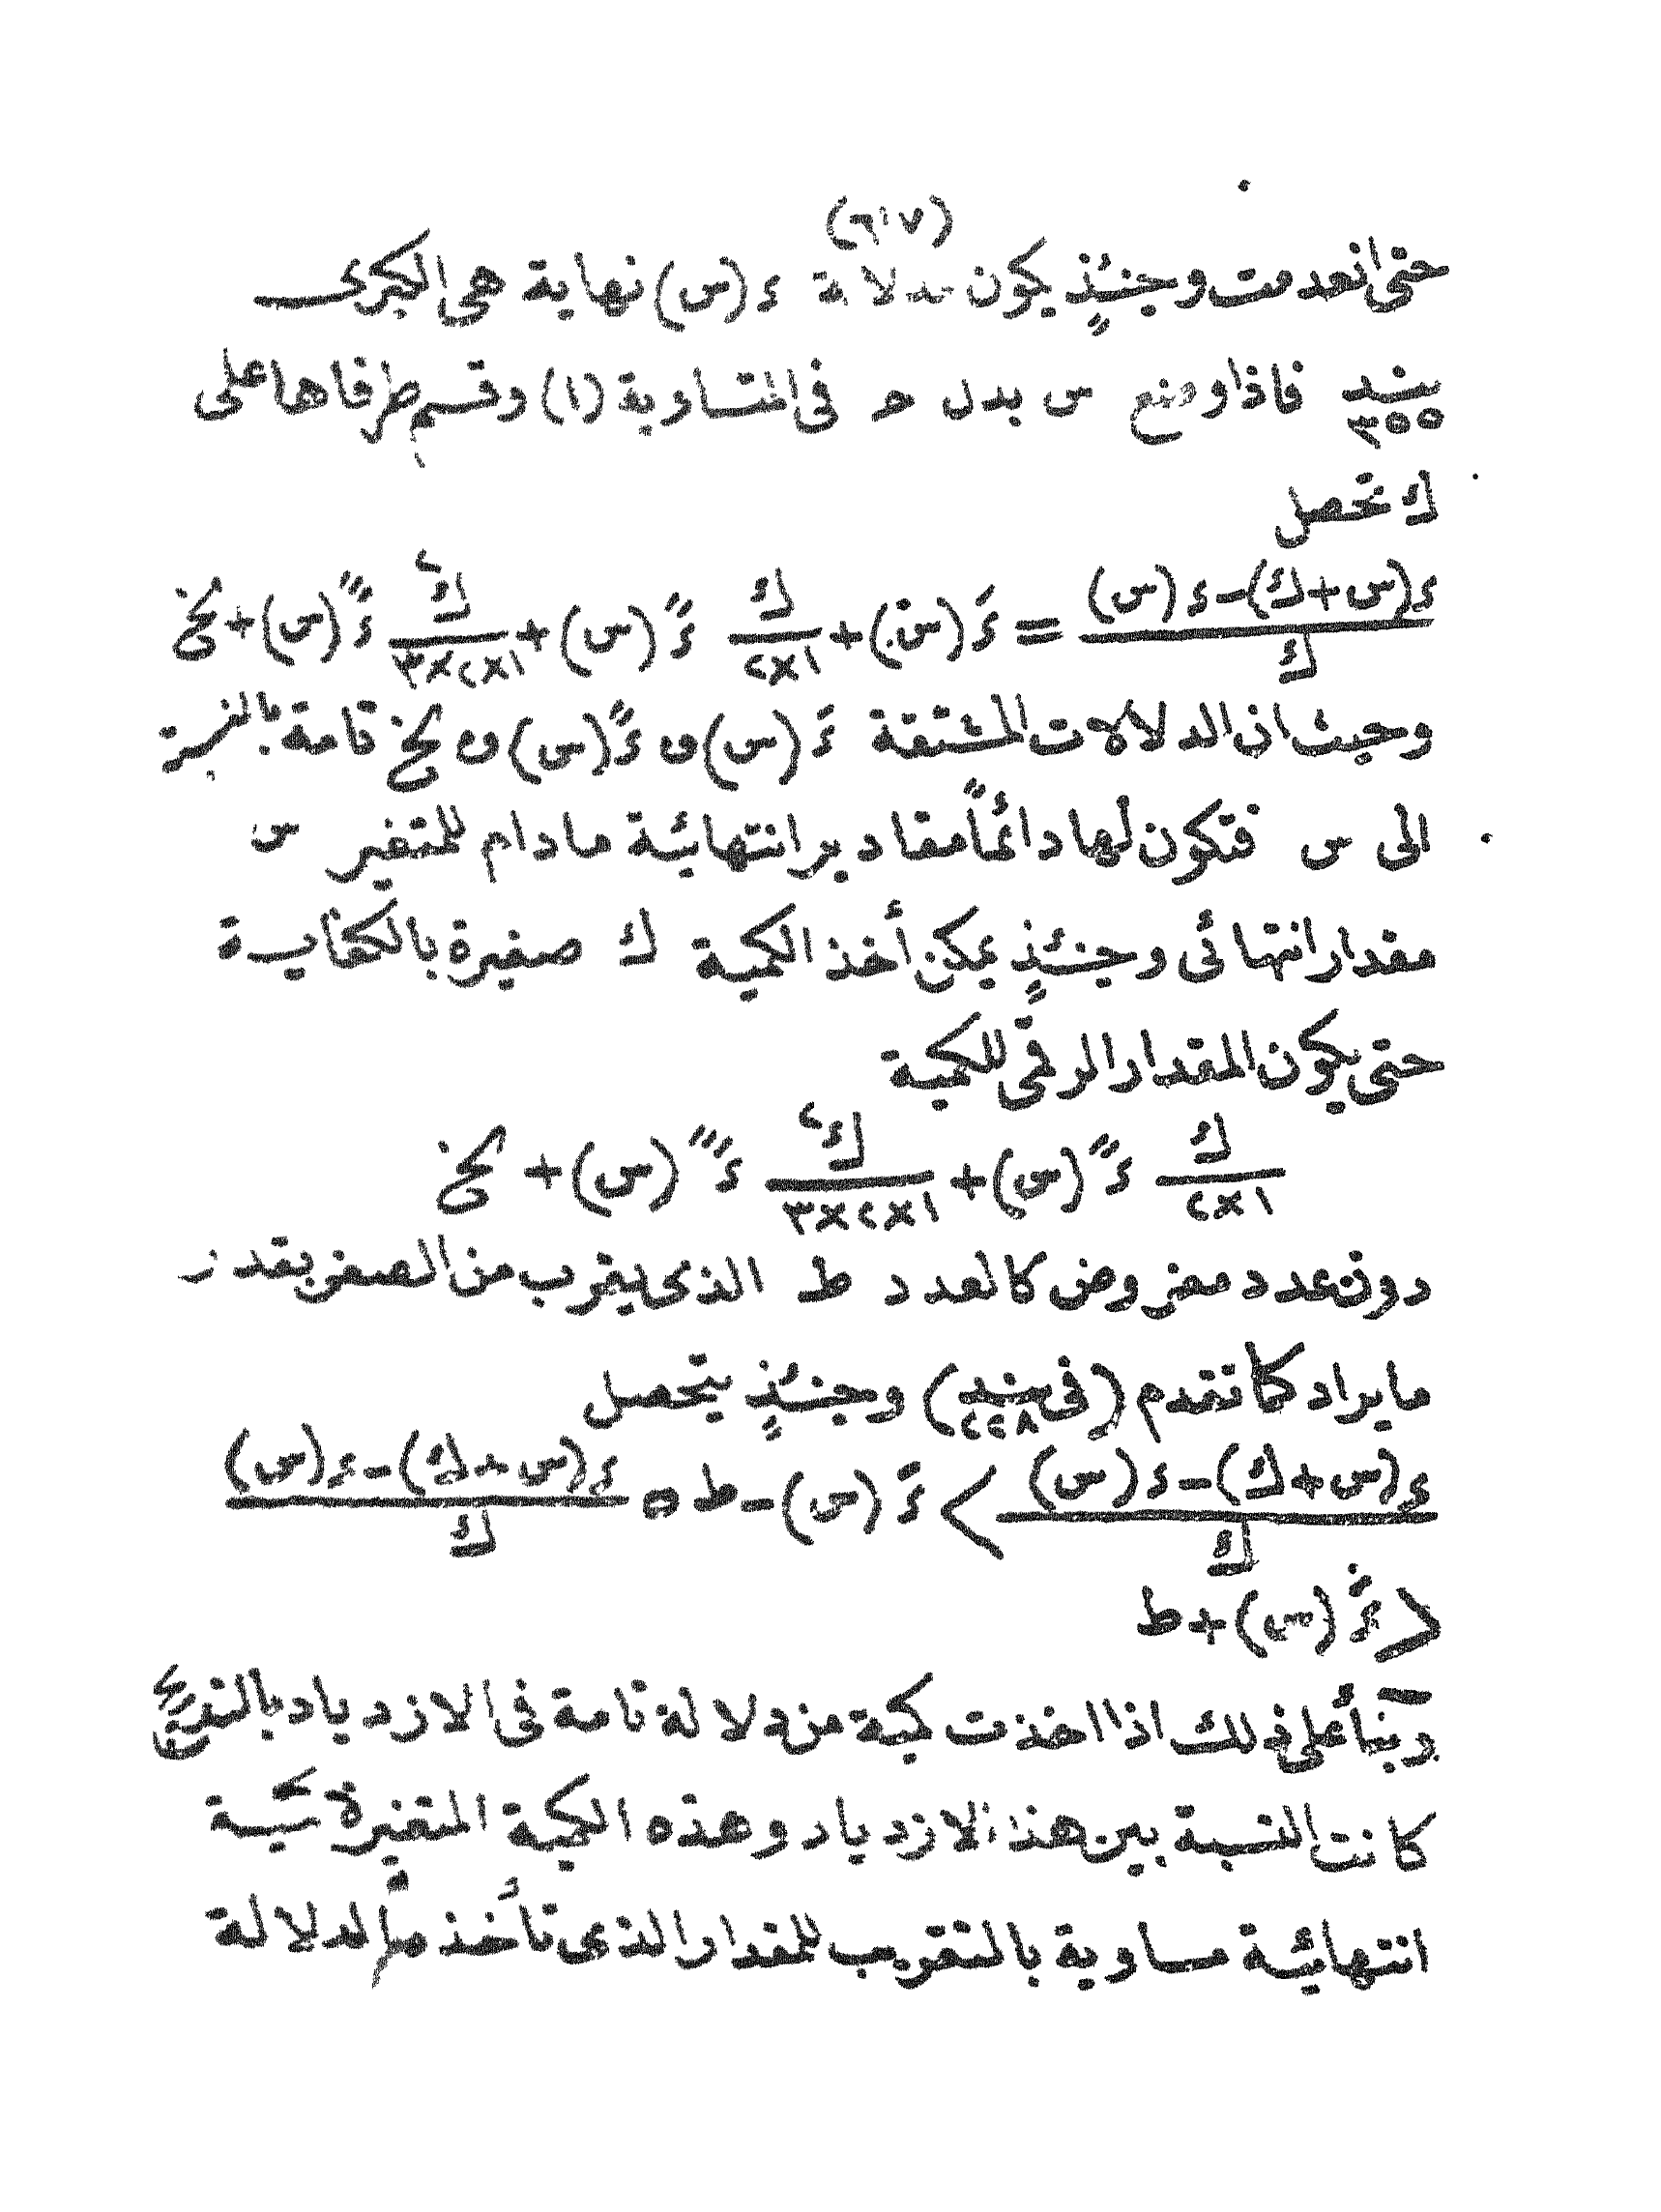 (٦١٧)
حتى انعدمت وحينئذٍ يكون لدلالة د (س) نهاية هي الكبرى
بند ٥٥٣ فاذا وضع س بدل حـ في المتساوية (١) وقسم طرفاها على
ك تحصل
د(س+ك)-د(س) / ك = دَ (س) + ك / ١×٢ دً (س) + ك٢ / ١×٢×٣ د‴ (س) + لخ
وحيث ان الدلالات المشتقة دَ (س) و دً (س) و لخ تامة بالنسبة
الى س فتكون لها دائماً مقادير انتهائية مادام للمتغير س
مقدار انتهائى وحينئذٍ يمكن أخذ الكمية ك صغيرة بالكفاية
حتى يكون المقدار الرقمى للكمية
ك / ١×٢ دً (س) + ك٢ / ١×٢×٣ د‴ (س) + لخ
دون عدد مفروض كالعدد ط الذى يقرب من الصفر بقدر
ما يراد كما تقدم (في بند ٤٤٨) وحينئذٍ يتحصل
د(س+ك)-د(س) / ك > دَ (س) - ط و د(س+ك)-د(س) / ك
< دَ (س) + ط
وبنأ على ذلك اذا اخذت كمية من دلالة تامة في الازدياد بالتدريج
كانت النسبة بين هذا الازدياد وهذه الكمية المتغيرة كمية
انتهائية مساوية بالتقريب للمقدار الذى تأخذه الدلالة